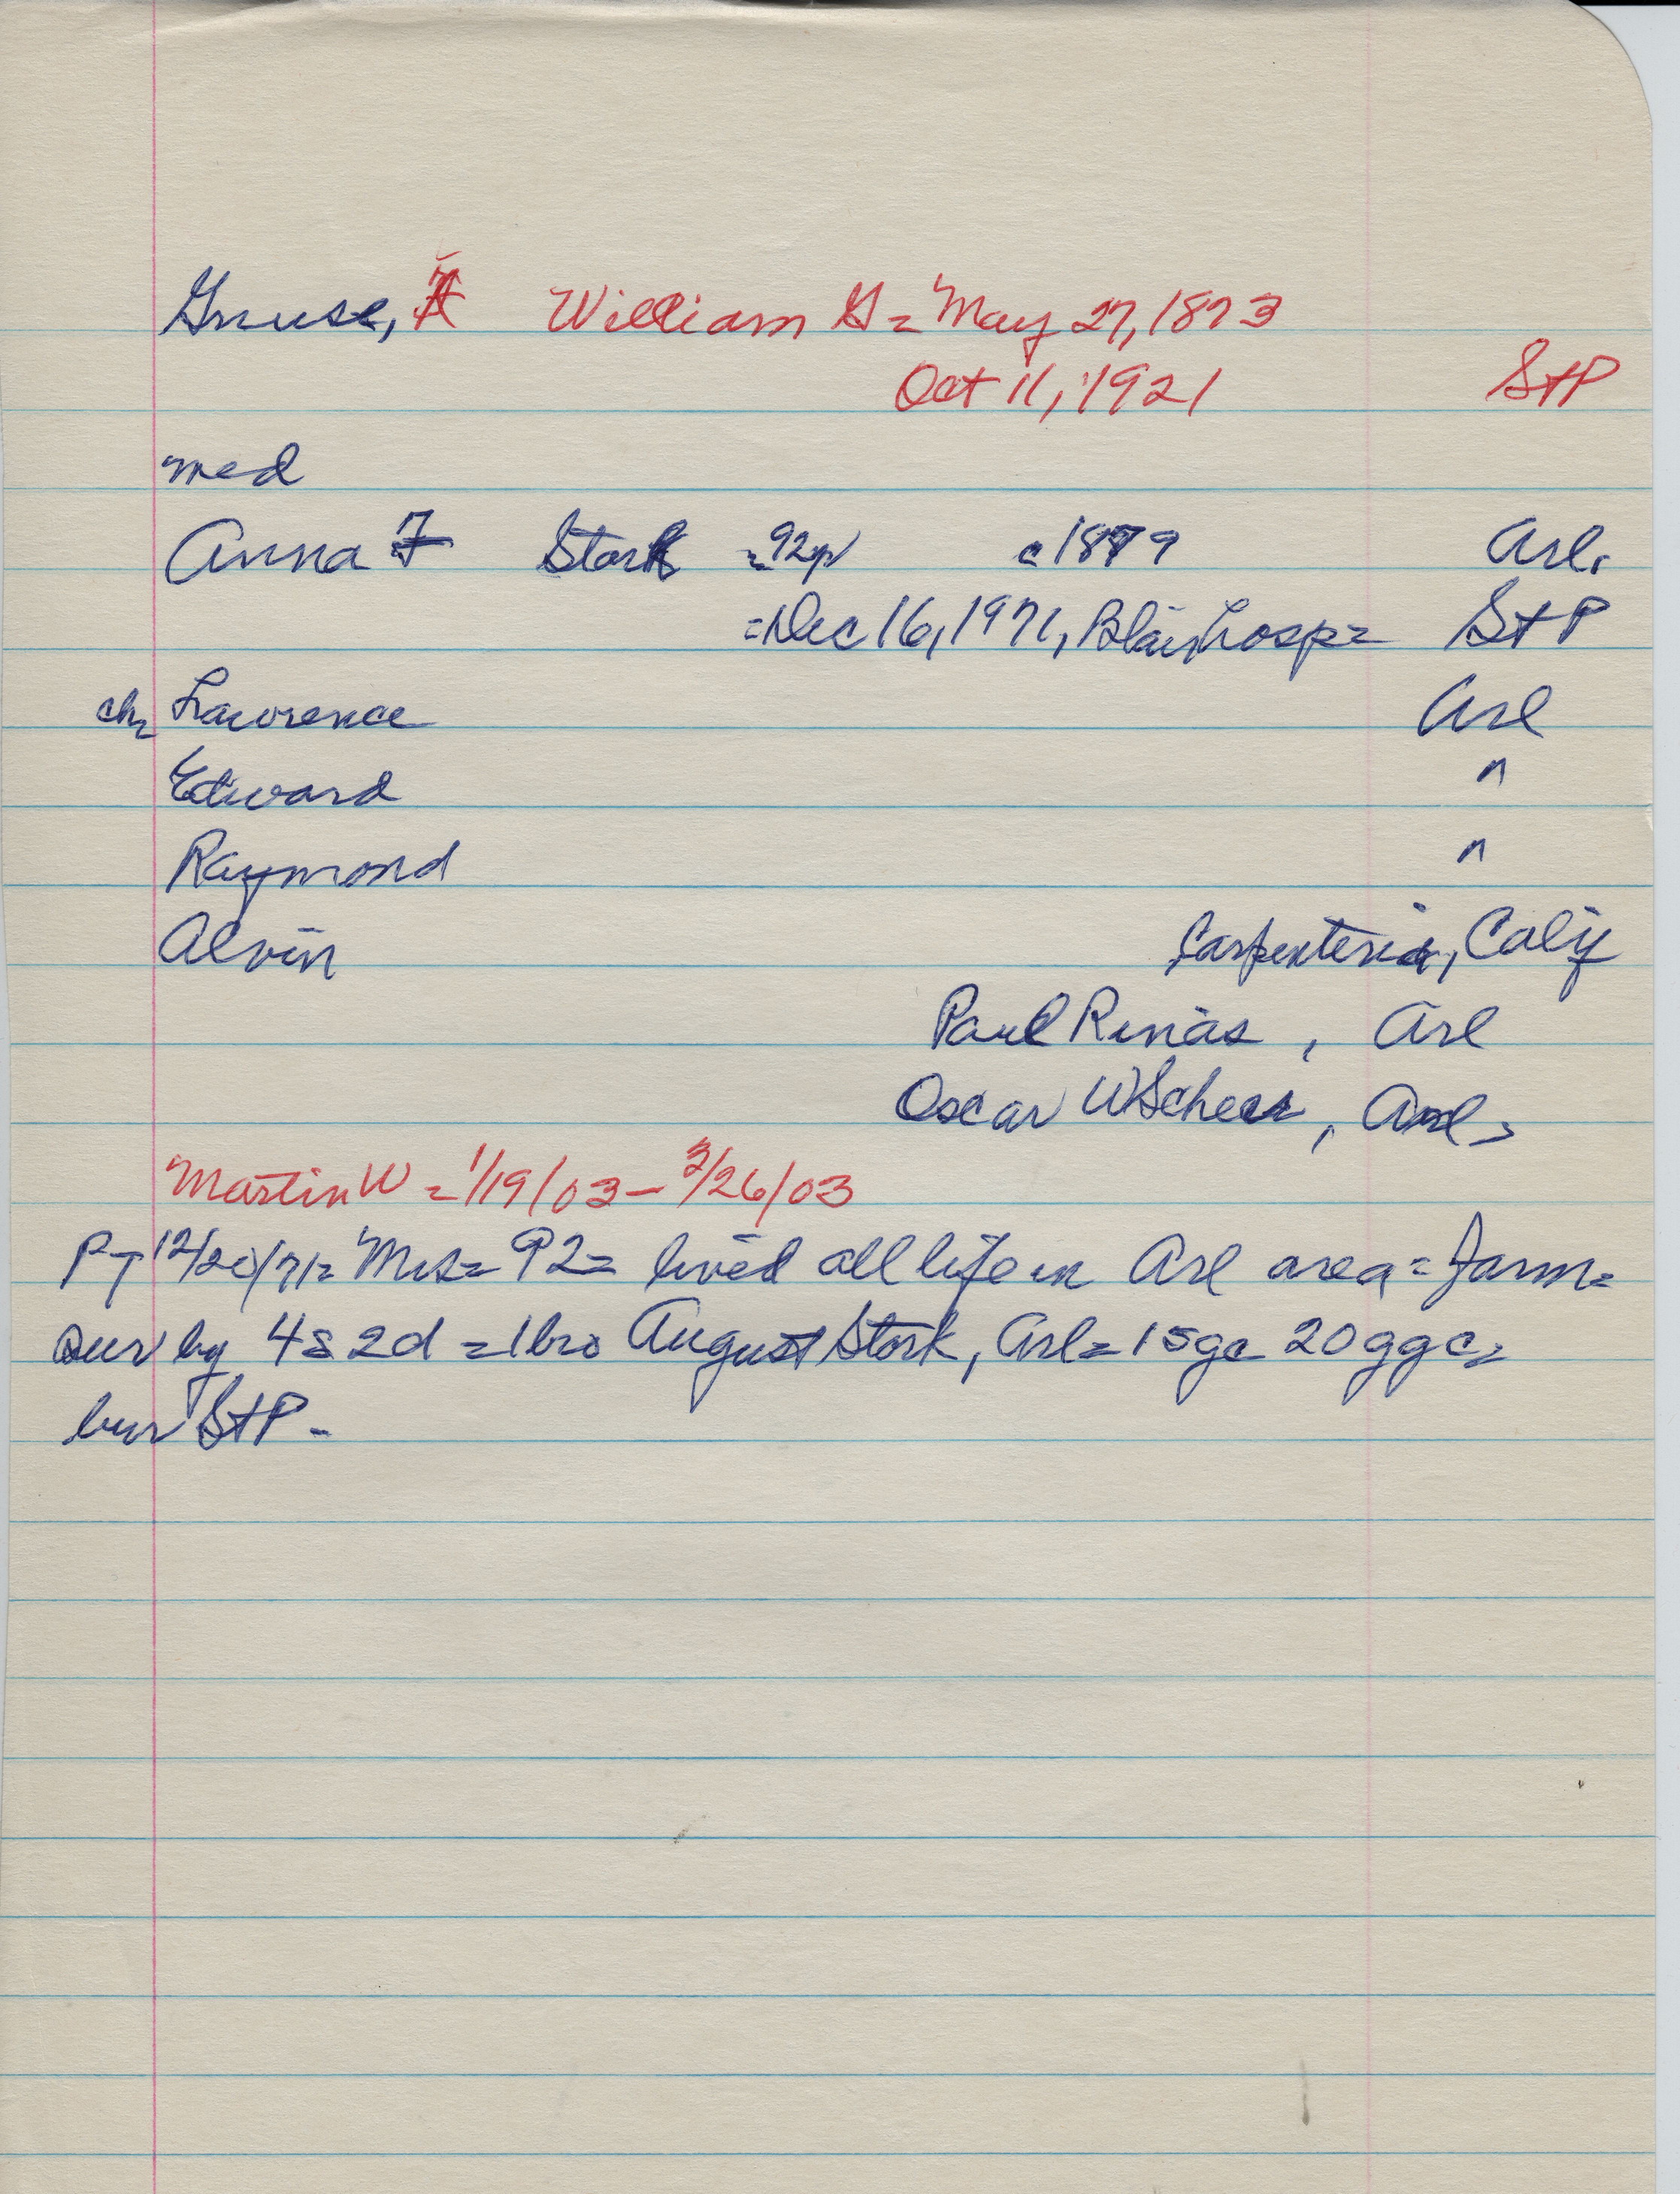 Gnuse, William G = May 27, 1873
Oct 11, 1921 StP
med
Anna F Stork = 92y c 1879 Arl.
= Dec 16, 1971, Blair hosp = StP
ch = Lawrence Arl
Edward "
Raymond "
Alvin Carpenteria, Calif
Paul Rinas, Arl
Oscar W Scheer, Arl
Martin W = 1/19/03 – 3/26/03
PT 12/20/71 = Mrs = 92 = lived all life in Arl area = farm =
sur by 4s 2d = 1 bro August Stork, Arl = 15gc 20ggc =
bur StP -